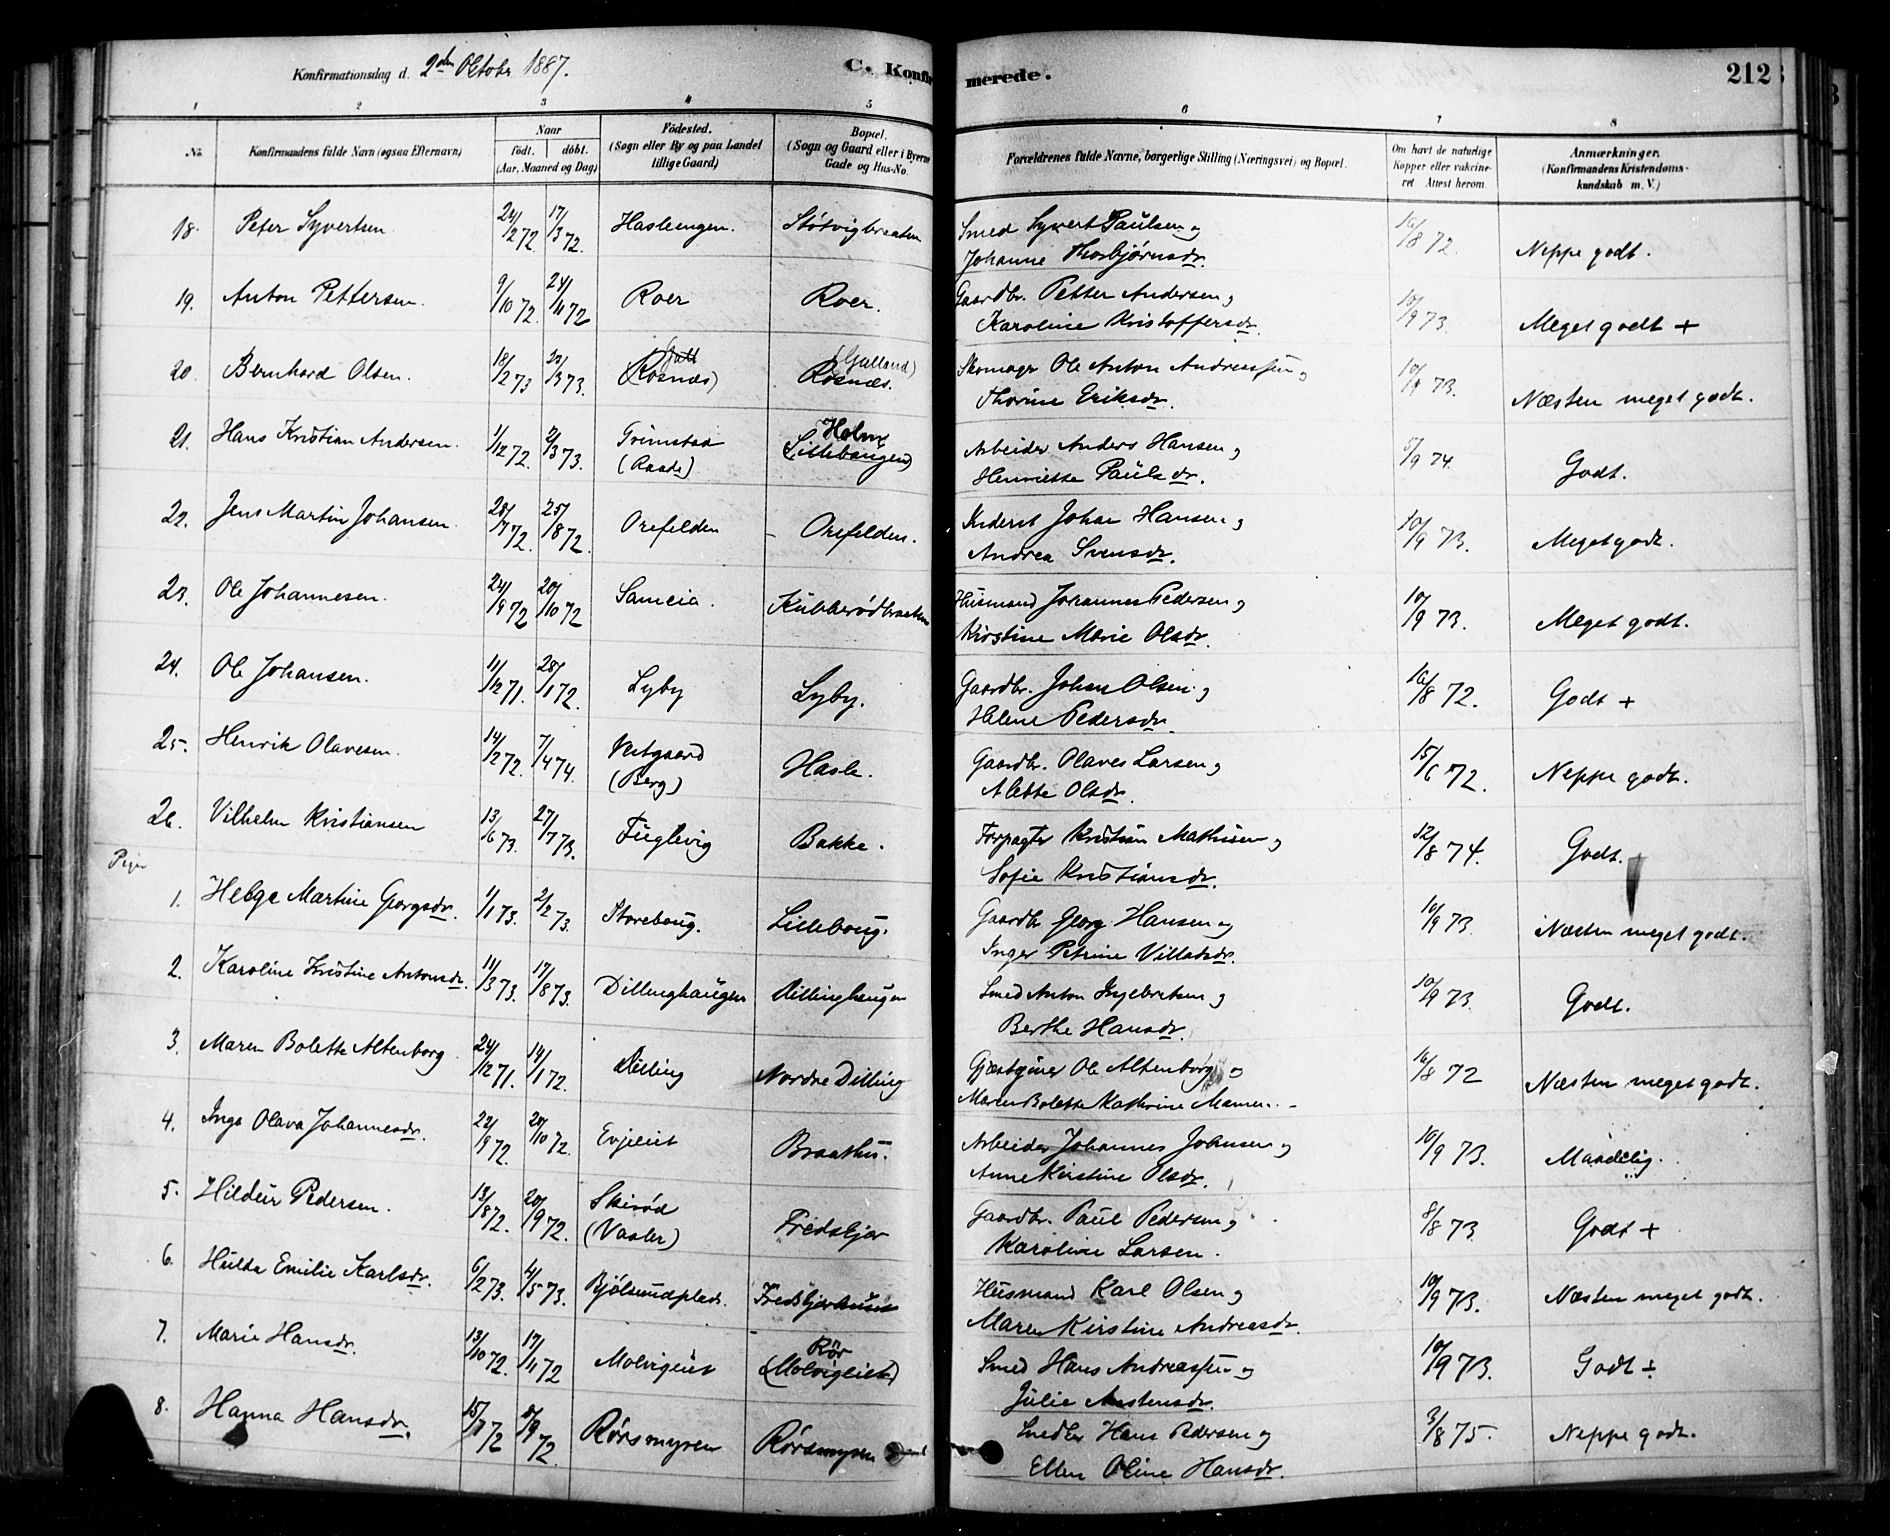 Konfirmationsdag d. 2den Oktobr 1887.
C. Konfirmerede.
212
1 2 3 4 5 6 7 8
No.
Konfirmandens fulde Navn (ogsaa Efternavn)
Naar
födt. döbt.
(Aar, Maaned og Dag)
Födested.
(Sogn eller By og paa Landet
tillige Gaard)
Bopæl.
(Sogn og Gaard eller i Byerne
Gade og Hus-No.
Forældrenes fulde Navne, borgerlige Stilling (Næringsvei) og Bopæl.
Om havt de naturlige
Kopper eller vakcine-
ret Attest herom.
Anmærkninger.
(Konfirmandens Kristendoms-
kundskab m. V.)
18. Peter Syvertsen 24/2 72. 17/3 72. Haslengen. Støtvigbraaten Smed Syvert Paulsen og
Johanne Thorbjørnsdr. 16/8 72. Neppe godt.
19. Anton Pettersen. 9/10 72. 24/11 72 Roer Roer. Gaardbr. Petter Andersen og
Karoline Kristoffersdr. 10/9 73. Meget godt +
20. Bernhard Olsen. 18/2 73 /3 73. (Rosnæs) (Galland)
Rosnæs. Skomager Ole Anton Andreassen og
Thorine Eriksdr. 10/9 73. Næsten meget godt.
21. Hans Kristian Andersen. 1/12 72. 2/3 73. Grimstad
(Raade) Holm
(Lillebaugen) Arbeider Anders Hansen og
Henriette Paulsdr. 5/9 74. Godt.
22. Jens Martin Johansen 28/7 72. 25/8 72. Orefelden Orefelden. Inderst Johan Hansen og
Andrea Svensdr. 10/9 73. Meget godt.
23. Ole Johannesen. 24/9 72 20/10 72 Sameia. Kubberødbraaten Husmand Johannes Pedersen og
Kirstine Marie Olsdr. 10/9 73. Meget godt.
24. Ole Johansen. 11/12 71. 28/1 72. Lyby Lyby. Gaardbr. Johan Olsen og
Helene Pedersdr. 16/8 72. Godt +
25. Henrik Olavesen. 14/2 72. 7/4 74. Vestgaard
(Berg) Hasle. Gaardbr. Olaves Larsen og
Alette Olsdr. 15/6 72. Neppe godt.
26. Vilhelm Kristiansen 13/6 73. 27/7 73. Fuglevig Bakke. Forpagter Kristian Mathisen og
Sofie Kristiansdr. 12/8 74. Godt.
Piger
1. Helga Martine Georgsdr. 1/1 73. 2/2 73. Storebaug. Lillebaug. Gaardbr Georg Hansen og
Inger Petrine Villadsdr. 10/9 73. Næsten meget godt.
2. Karoline Kristine Antonsdr. 11/3 73. 17/8 73. Dillinghaugen Dillinghaugen Smed Anton Ingebretsen og
Berthe Hansdr. 10/9 73. Godt.
3. Maren Bolette Altenborg 24/12 71. 14/1 72. Dilling Nordre Dilling Gjæstgiver Ole Altenborg og
Maren Bolette Kathrine Mamen. 16/8 72 Næsten meget godt.
4. Inga Olava Johannesdr. 22/9 72. 20/10 72. Evjeeiet Braathu. Arbeider Johannes Johnsen og
Anne Kirstine Olsdr. 10/9 73. Maadelig.
5. Hildur Pedersen. 13/8 72. 20/9 72. Skirød
(Vaaler) Fredskjær Gaardbr. Paul Pedersen og
Karoline Larsen. 8/8 73 Godt +
6. Hulda Emilie Karlsdr. 6/2 73. 4/5 73. Bjølsundplads. Fredskjærhuset Husmand Karl Olsen og
Maren Kirstine Andreasdr. 10/9 73. Næsten meget godt.
7. Marie Hansdr. 13/10 72. 17/11 72 Molvigeiet Rør
(Molvigeiet) Smed Hans Andreassen og
Julie Mortensdr. 10/9 73. Godt ±
8. Hanna Hansdr. 15/7 72 8/9 72. Rørsmyren Rørsmyren Hans Pedersen og
Ellen Oline Hansdr. 3/8 75. Neppe godt.